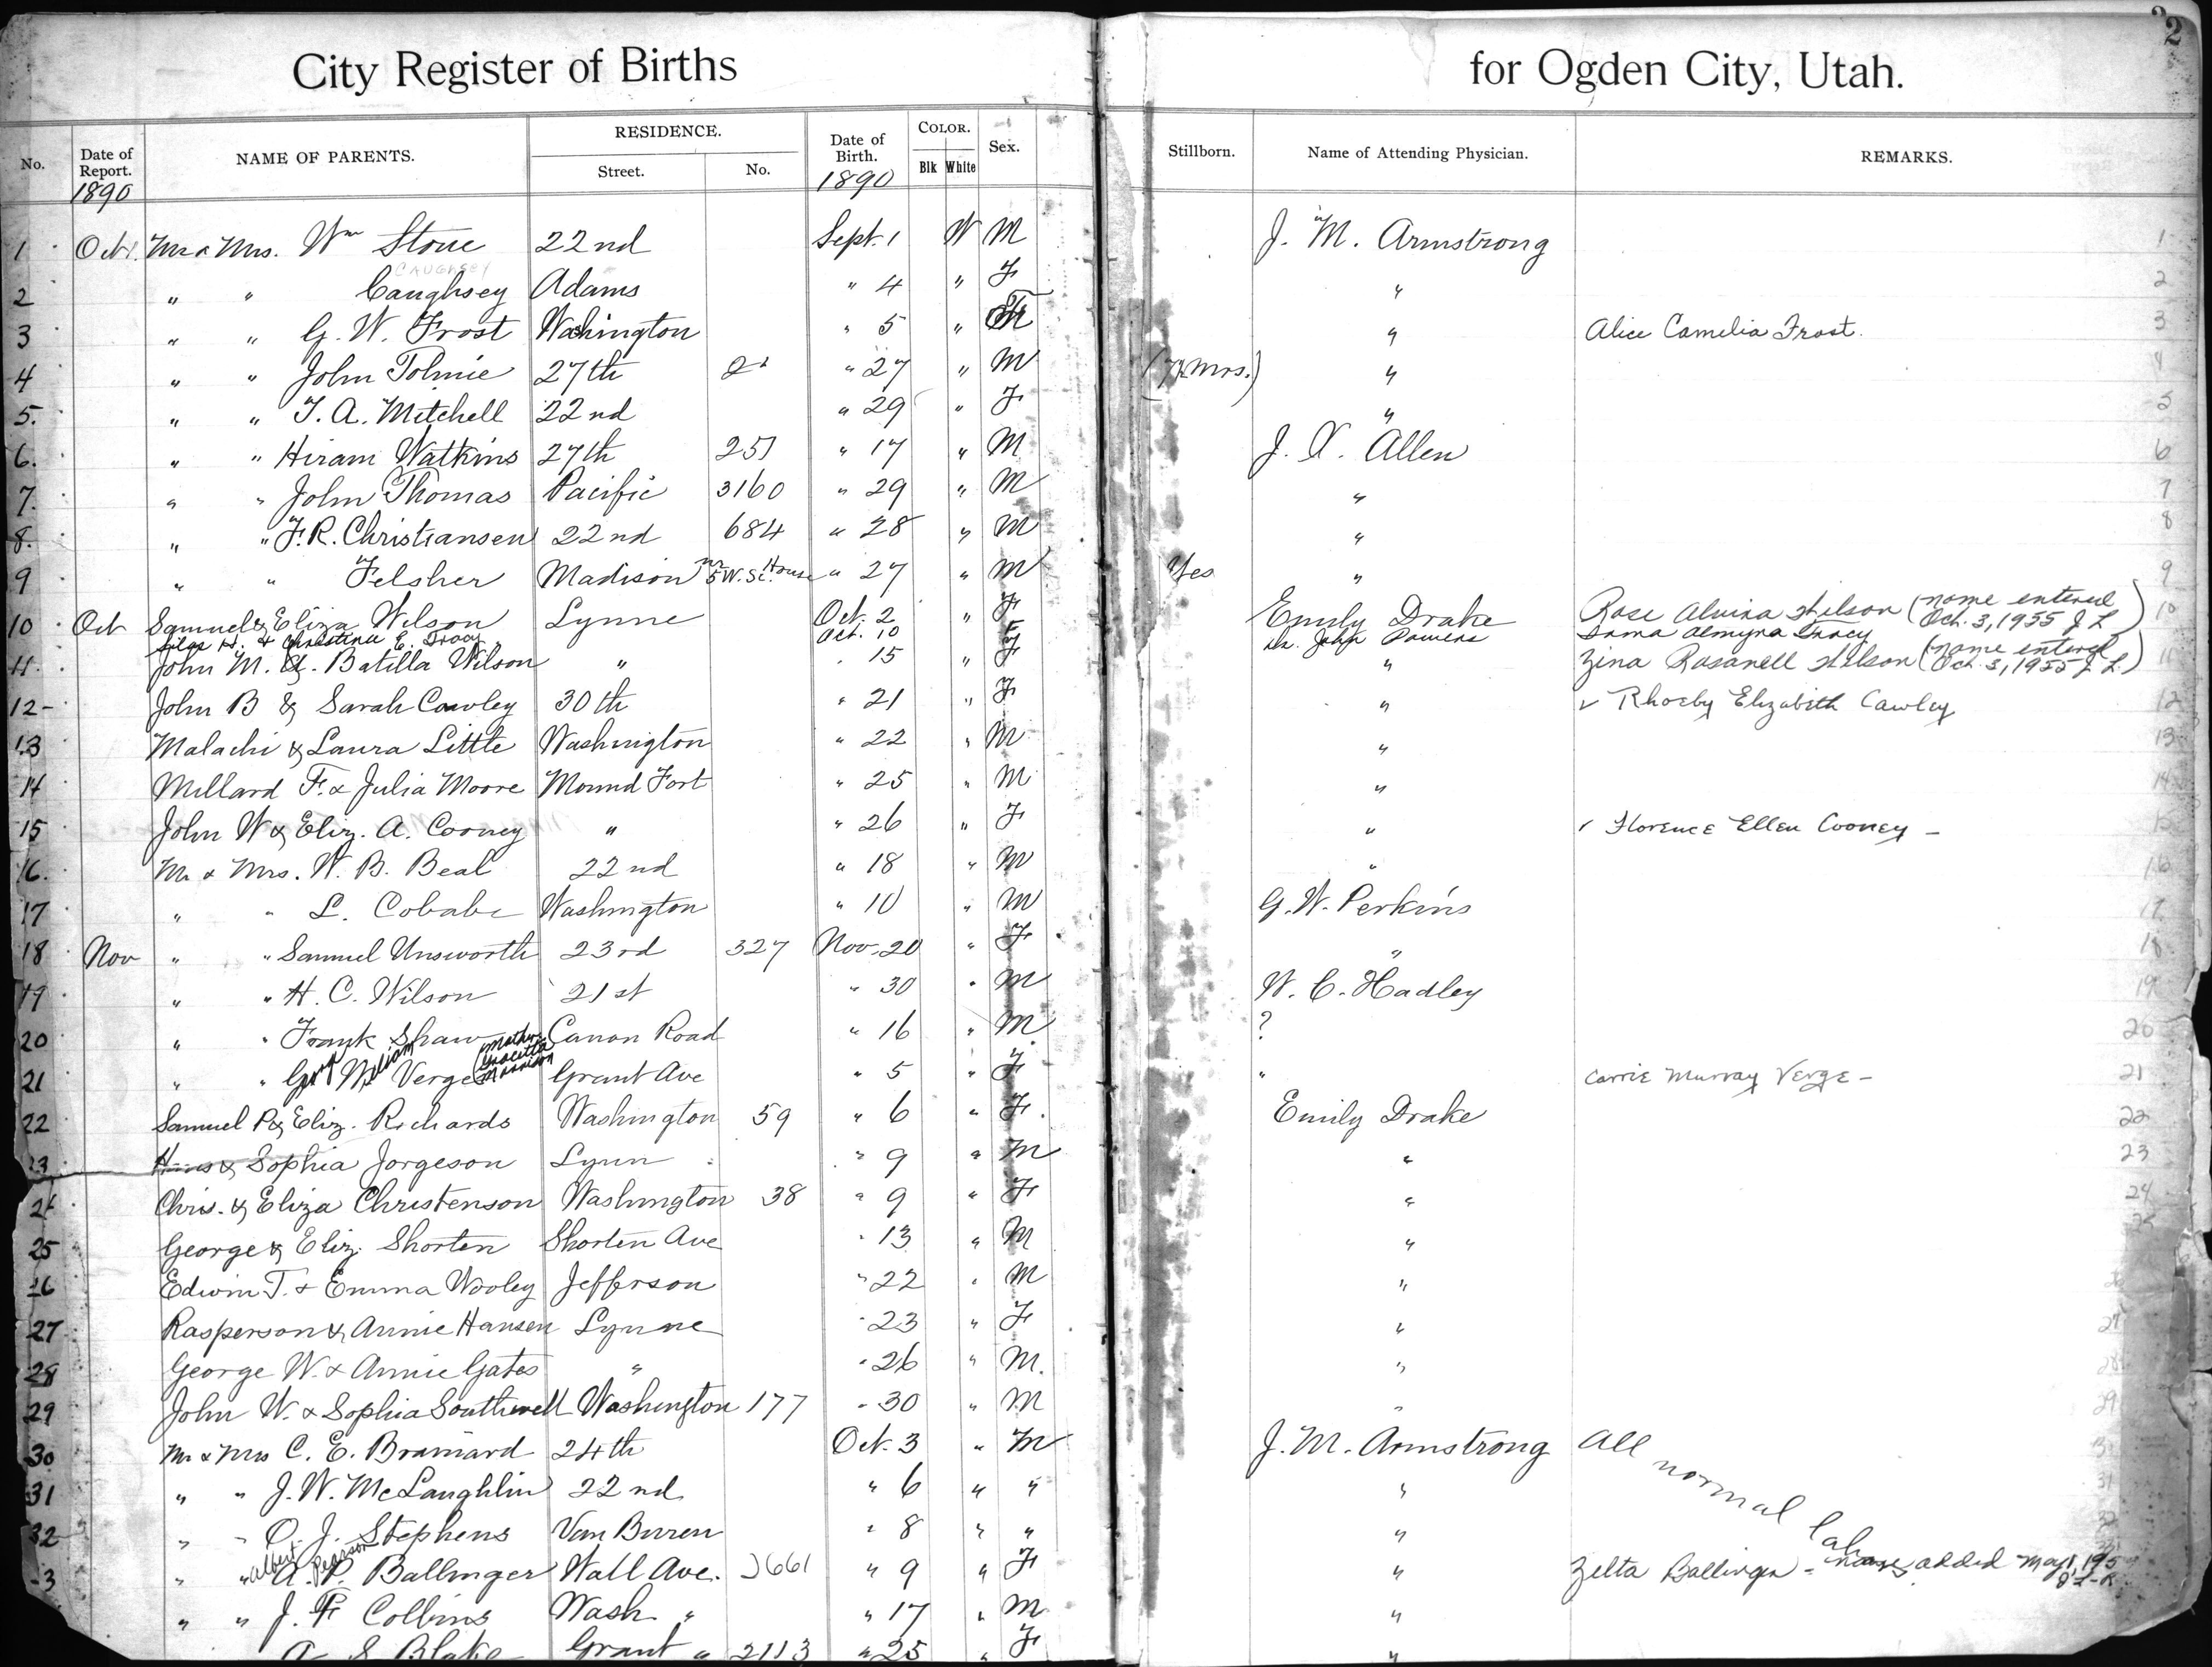 2
City Register of Births for Ogden City, Utah.
No. Date of Report. NAME OF PARENTS. RESIDENCE. Street. No. Date of Birth. COLOR. Blk White Sex. Stillborn. Name of Attending Physician. REMARKS.
1890 1890
1 Oct 1. Mr & Mrs. Wm Stone 22nd Sept. 1 W M J. M. Armstrong 1
CAUGHSEY
2 " " Caughsey Adams " 4 " F " 2
3 " " G. W. Frost Washington " 5 " " Alice Camelia Frost. 3
4 " " John Tolmie 27th " 27 " M (7½ mos.) " 4
5. " " T. A. Mitchell 22nd " 29 " F " 5
6. " " Hiram Watkins 27th 251 " 17 " M J. X. Allen 6
7. " " John Thomas Pacific 3160 " 29 " M " 7
8. " " F. R. Christiansen 22nd 684 " 28 " M " 8
9 " " Felsher Madison nr 5 W. Sc. House " 27 " M Yes " 9
10 Oct Samuel & Eliza Wilson Lynne Oct. 2 " F Emily Drake Rose Alvina Wilson (name entered Oct. 3, 1955 J L) 10
Silas H. & Christina E. Tracy Oct. 10 F Dr. John Powers Almyra Tracy
11. John M. & Batilla Wilson " " 15 " F " Zina Rosanell Wilson (name entered Oct. 3, 1955 J L.) 11
12 John B & Sarah Cawley 30th " 21 " F " ✓ Rhoeby Elizabeth Cawley 12
13 Malachi & Laura Little Washington " 22 " M " 13
14 Millard F. & Julia Moore Mound Fort " 25 " M " 14
15 John W & Eliz. A. Cooney " " 26 " F " ✓ Florence Ellen Cooney - 15
16. Mr & Mrs. W. B. Beal 22nd " 18 " M " 16
17 " " L. Cobabe Washington " 10 " M G. W. Perkins 17
18 Nov " " Samuel Unsworth 23rd 327 Nov. 20 " F " 18
19 " " H. C. Wilson 21st " 30 " M W. C. Hadley 19
20 " " Frank Shaw Canon Road " 16 " M ? 20
21 " " George William Verge (Mother Morrison Grant Ave " 5 " F " Carrie Murray Verge - 21
22 Samuel P & Eliz. Richards Washington 59 " 6 " F. Emily Drake 22
23 Hans & Sophia Jorgeson Lynn " 9 " M " 23
24 Chris. & Eliza Christenson Washington 38 " 9 " F " 24
25 George & Eliz. Shorten Shorten Ave " 13 " M " 25
26 Edwin T. & Emma Wooley Jefferson " 22 " M " 26
27 Rasperson & Annie Hansen Lynne " 23 " F " 27
28 George W. & Annie Gates " " 26 " M. " 28
29 John W. & Sophia Southwell Washington 177 " 30 " M " 29
30 Mr & Mrs C. E. Brainard 24th Oct. 3 " M J. M. Armstrong All normal labors
31 " " J. W. McLaughlin 22nd " 6 " " " 31
32 " " O. J. Stephens Van Buren " 8 " " " 32
3 " " Albert Pearson A. P. Ballinger Wall Ave. 2661 " 9 " F " Zelta Ballinger - name added May 1, 195
" " J. F. Collins Wash. " " 17 " M "
A. S. Blake Grant " 2113 " 25 " F "